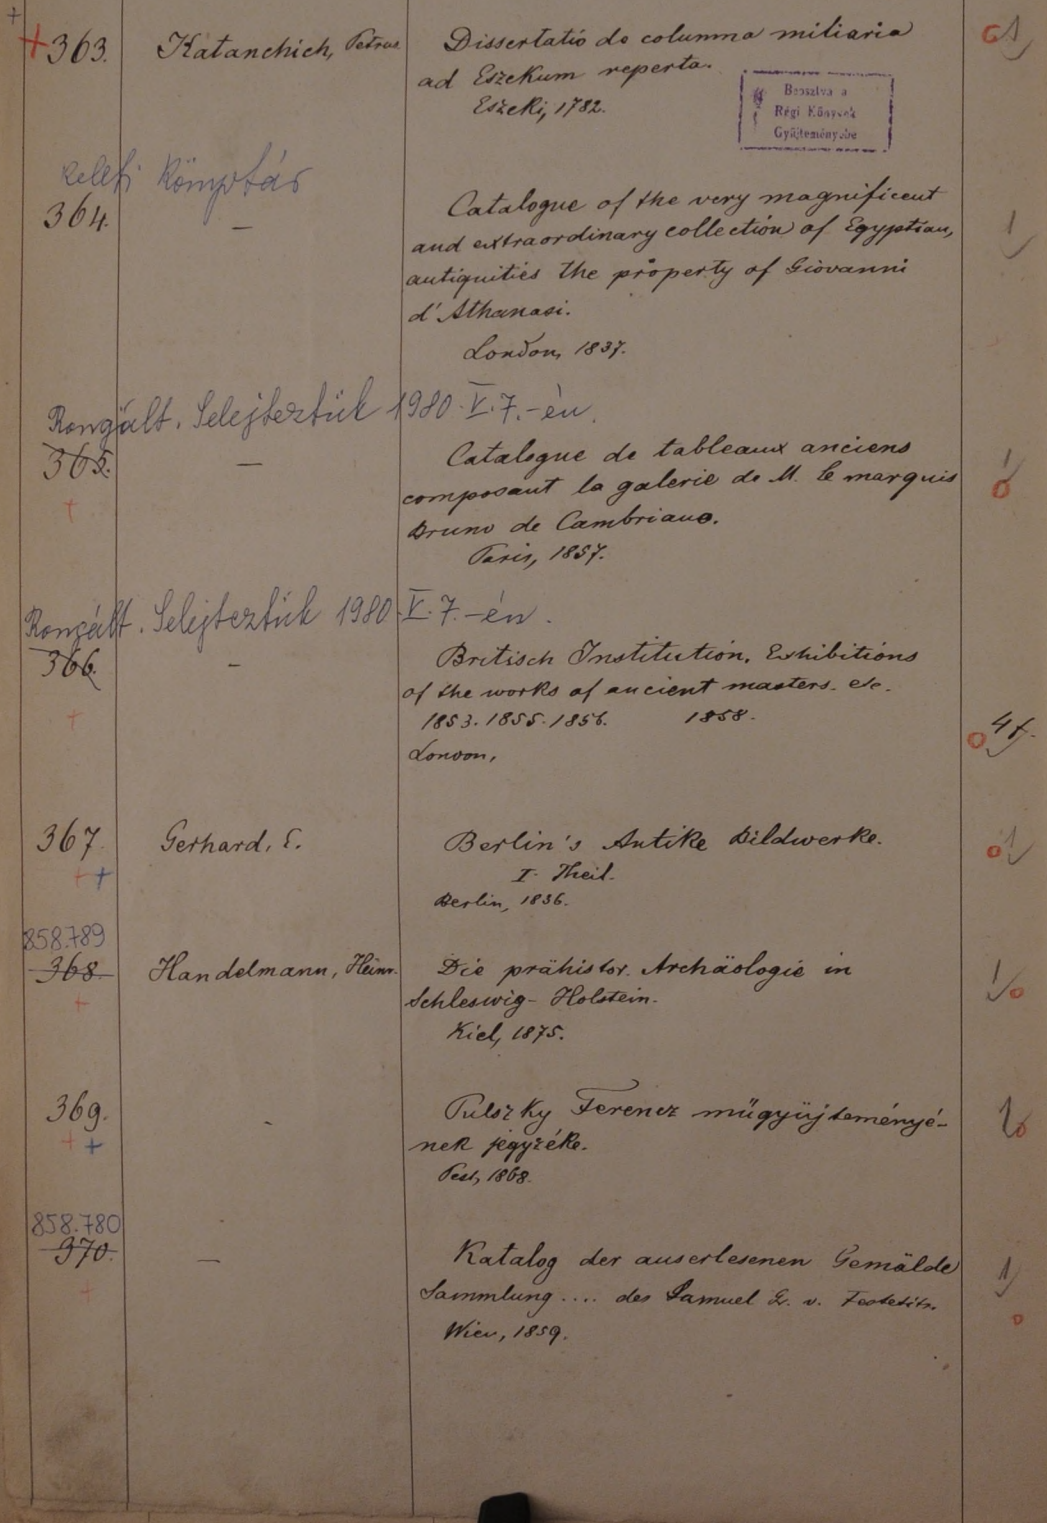 363. Katanchich, Petrus Dissertatio de columna miliaria
ad Eszekum reperta.
Eszeki, 1782.
Beosztva a
Régi Könyvek
Gyűjteményébe
1
keleti könyvtár
364. — Catalogue of the very magnificent
and extraordinary collection of Egyptian,
antiquities the property of Giovanni
d'Athanasi.
London, 1837.
1
Rongált. Selejteztük 1980. V. 7.-én.
365. — Catalogue de tableaux anciens
composant la galerie de M. le marquis
Bruno de Cambriano.
Paris, 1857.
1
Rongált. Selejteztük 1980. V. 7.-én.
366. — Britisch Institution. Exhibitions
of the works of ancient masters. etc.
1853. 1855. 1856. 1858.
London,
4 f.
367. Gerhard, E. Berlin's Antike Bildwerke.
I. Theil.
Berlin, 1836.
1
858.789
368. Handelmann, Heinr. Die prähistor. Archäologie in
Schleswig-Holstein.
Kiel, 1875.
1
369. - Pulszky Ferencz műgyüjteményé-
nek jegyzéke.
Pest, 1868.
1
858.780
370. — Katalog der auserlesenen Gemälde
Sammlung .... des Samuel G. v. Festetits.
Wien, 1859.
1